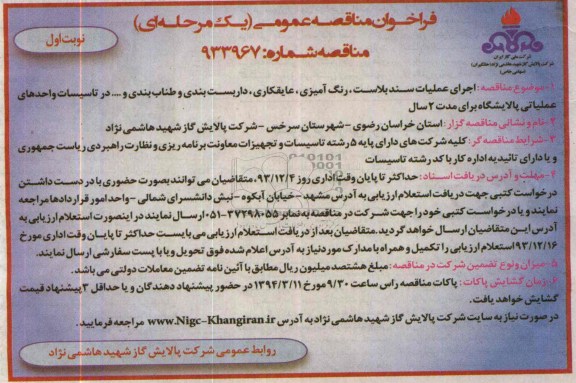 فراخوان مناقصه عمومی (یک مرحله‌ای)
مناقصه شماره: ۹۳۳۹۶۷
نوبت اول
شرکت ملی گاز ایران
شرکت پالایش گاز شهید هاشمی نژاد (خانگیران)
(سهامی خاص)
۱- موضوع مناقصه: اجرای عملیات سند بلاست، رنگ آمیزی، عایقکاری، داربست بندی و طناب بندی و .... در تاسیسات واحدهای
عملیاتی پالایشگاه برای مدت ۲ سال
۲- نام و نشانی مناقصه گزار: استان خراسان رضوی - شهرستان سرخس - شرکت پالایش گاز شهید هاشمی نژاد
۳- شرایط مناقصه گر: کلیه شرکت‌های دارای پایه ۵ رشته تاسیسات و تجهیزات معاونت برنامه ریزی و نظارت راهبردی ریاست جمهوری
و یا دارای تائیدیه اداره کار با کد رشته تاسیسات
۴- مهلت و آدرس دریافت اسناد: حداکثر تا پایان وقت اداری روز ۹۳/۱۲/۴، متقاضیان می توانند بصورت حضوری با در دست داشتن
درخواست کتبی جهت دریافت استعلام ارزیابی به آدرس مشهد - خیابان آبکوه - نبش دانشسرای شمالی - واحد امور قراردادها مراجعه
نمایند و یا درخواست کتبی خود را جهت شرکت در مناقصه به نمابر ۳۷۲۹۸۰۵۵-۰۵۱ ارسال نمایند در اینصورت استعلام ارزیابی به
آدرس این متقاضیان ارسال خواهد گردید. متقاضیان بعد از دریافت استعلام ارزیابی می بایست حداکثر تا پایان وقت اداری مورخ
۹۳/۱۲/۱۶ استعلام ارزیابی را تکمیل و همراه با مدارک مورد نیاز به آدرس اعلام شده فوق تحویل و یا با پست سفارشی ارسال نمایند.
۵- میزان و نوع تضمین شرکت در مناقصه: مبلغ هشتصد میلیون ریال مطابق با آئین نامه تضمین معاملات دولتی می باشد.
۶- زمان گشایش پاکات: پاکات مناقصه راس ساعت ۹/۳۰ مورخ ۱۳۹۴/۳/۱۱ در حضور پیشنهاد دهندگان و یا حداقل ۳ پیشنهاد قیمت
گشایش خواهد یافت.
در صورت نیاز به سایت شرکت پالایش گاز شهید هاشمی نژاد به آدرس www.Nigc-Khangiran.ir مراجعه فرمایید.
روابط عمومی شرکت پالایش گاز شهید هاشمی نژاد